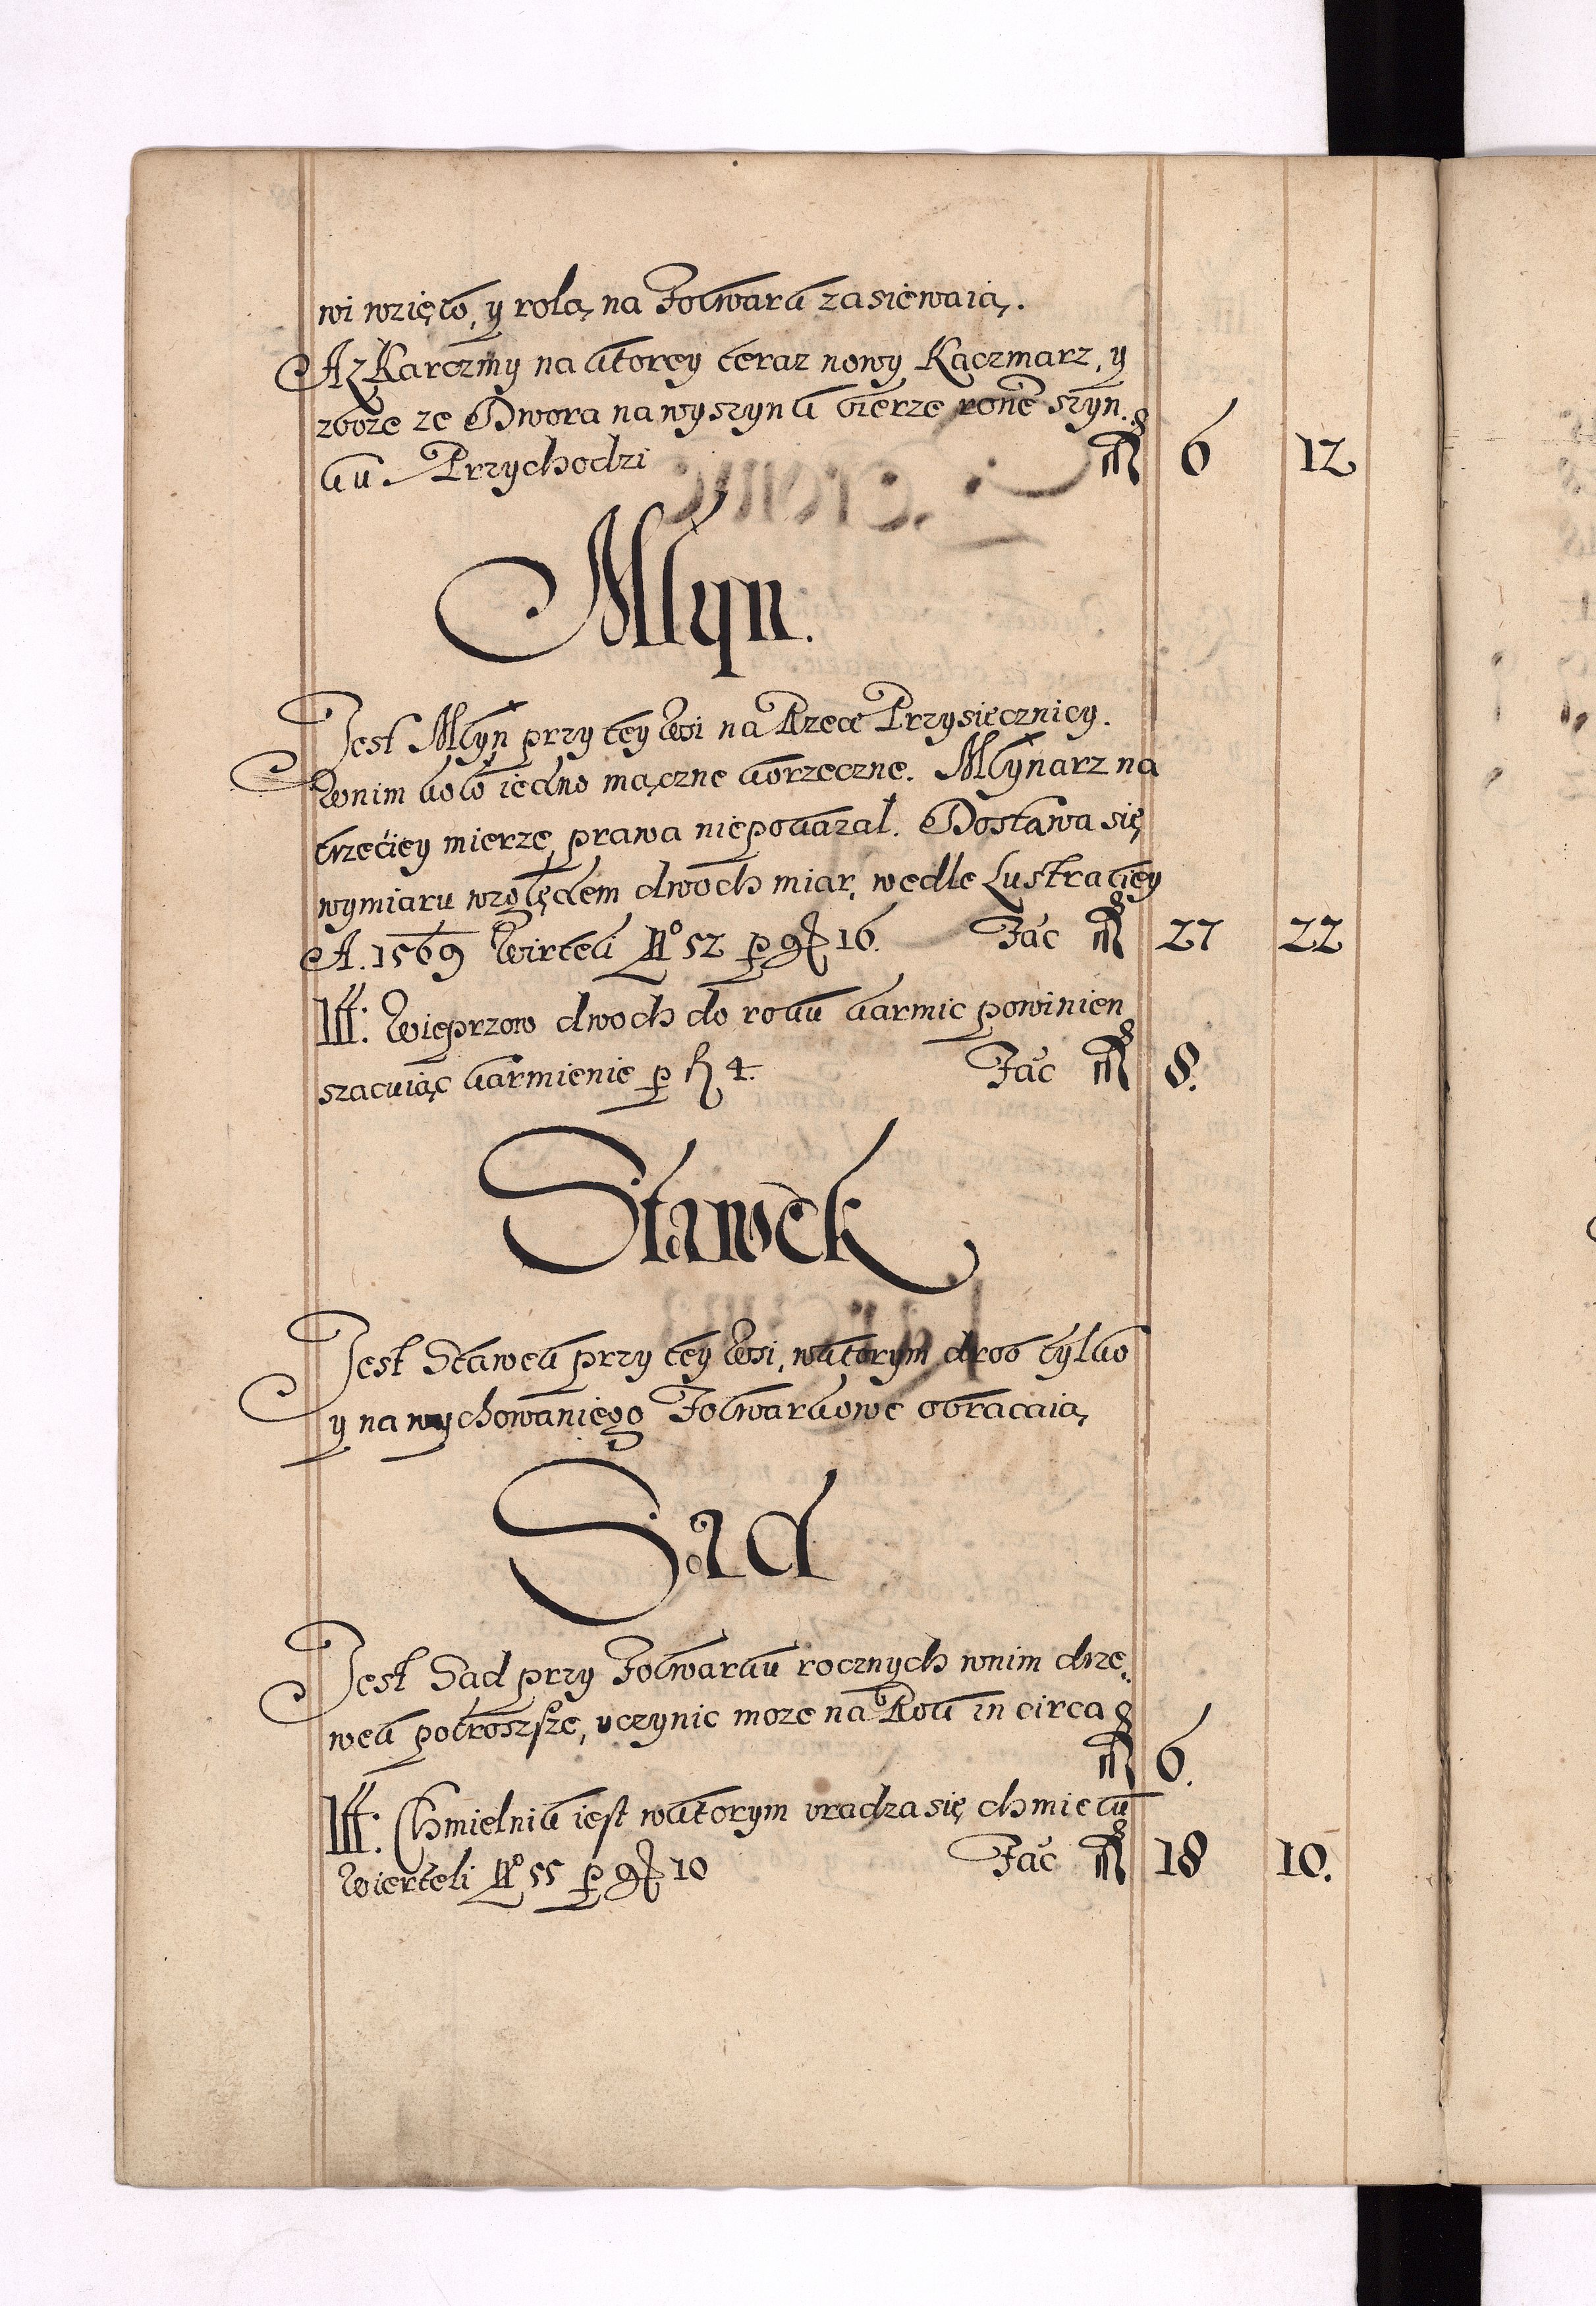 wi wzięto, y rolą na Folwark zasiewaią.
A z Karczmy na ktorey teraz nowy Kaczmarz, y
zboże ze Dwora na wyszynk bierze ronẽ szyn.
ku. Przychodzi 6 12
Młyn.
Jest Młyn przy tey Wsi na Rzece Przysiecznicy.
W nim koło iedno mączne korzeczne. Młynarz na
trzeciey mierze, prawa niepokazał. Dostawa się
wymiaru względem dwoch miar, wedle Lustraciey
A. 1569 Wirtek No 52 p gr 16. Fac 27 22
Itt: Wieprzow dwoch do roku karmic powinien
szacuiąc karmienie p fl 4. Fac 8.
Stawek
Jest Stawek przy tey Wsi, w ktorym drob tylko
y na wychowaniego Folwarkowe obracaią
Sad
Jest Sad przy Folwarku rocznych w nim drze,
wek potroszsze, uczynic moze na Rok in circa
6.
Itt: Chmielnik iest w ktorym vradza się chmielu
Wierteli No 55 p gr 10 Fac 18 10.